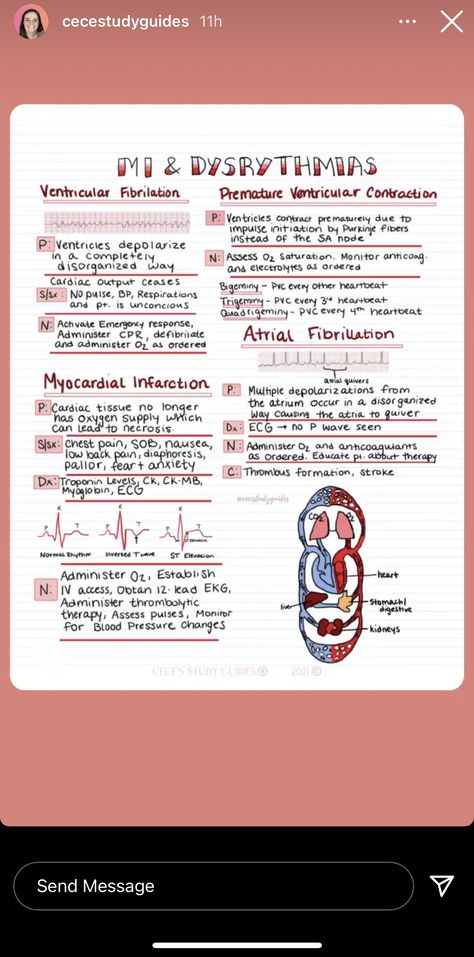 cecestudyguides 11h
MI & DYSRYTHMIAS
Ventricular Fibrilation
P: Ventricles depolarize
in a completely
disorganized way
Cardiac Output ceases
S/sx: No pulse, BP, Respirations
and pt. is unconcious
N: Activate Emergency response,
Administer CPR, defibrilate
and administer O₂ as ordered
Myocardial Infarction
P: Cardiac tissue no longer
has oxygen supply which
can lead to necrosis.
S/sx: Chest pain, SOB, nausea,
low back pain, diaphoresis,
pallor, fear + anxiety
Dx: Troponin Levels, CK, CK-MB,
Myoglobin, ECG
R
P
T
Normal Rhythm
R
P
T
Inverted T wave
R
P
T
ST Elevation
N: Administer O₂, Establish
IV access, Obtan 12-lead EKG,
Administer thrombolytic
therapy, Assess pulses, Monitor
for Blood Pressure Changes
Premature Ventricular Contraction
P: Ventricles contract prematurely due to
impulse initiation by Purkinje fibers
instead of the SA node
N: Assess O₂ Saturation. Monitor anticoag.
and electrolytes as ordered
Bigeminy - PVC every other heartbeat
Trigeminy - PVC every 3rd heartbeat
Quadrigeminy - PVC every 4th heartbeat
Atrial Fibrillation
atrial quivers
P: Multiple depolarizations from
the atrium occur in a disorganized
way causing the atria to quiver
Dx: ECG → no P wave seen
N: Administer O₂ and anticoagulants
as ordered. Educate pt. about therapy
C: Thrombus formation, stroke
@cecestudyguides
CO₂ O₂
heart
liver
stomach/
digestive
kidneys
CECE'S STUDY GUIDES® 2021 ©
Send Message